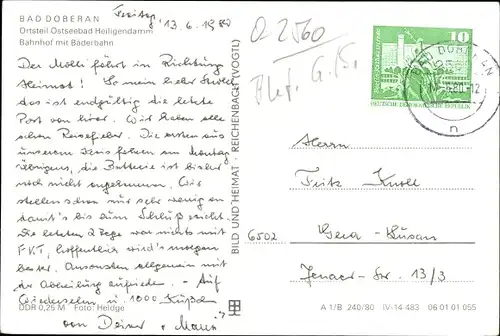 BAD DOBERAN
Ortsteil Ostseebad Heiligendamm
Bahnhof mit Bäderbahn
Freitag, 13.6.1980
Der Molli fährt in Richtung
Heimat! So mein lieber
das ist endgültig die letzte
Post von hier. Wir haben alle
schon Reisefieber. Die ersten aus
unserem Haus fahren am Montag
übrigens, die Batterie ist bisher
noch nicht angekommen. Wir
stellen schon nur sehr wenig an
damit's bis zum Schluß reicht.
Die letzten 2 Tage war nichts mit
FKK, hoffentlich wird's morgen
besser. Ansonsten allgemein mit
der Abteilung zufrieden. - Auf
Wiedersehen u. 1000 Küßchen
von Deiner Maus
DDR 0,25 M Foto: Heldge
BILD UND HEIMAT · REICHENBACH (VOGTL)
Q 2560
10
DEUTSCHE DEMOKRATISCHE REPUBLIK
BAD DOBERAN
n
Herrn
Fritz
6502 Gera-Lusan
Jenaer-Str. 13/3
A 1/B 240/80 IV-14-483 06 01 01 055